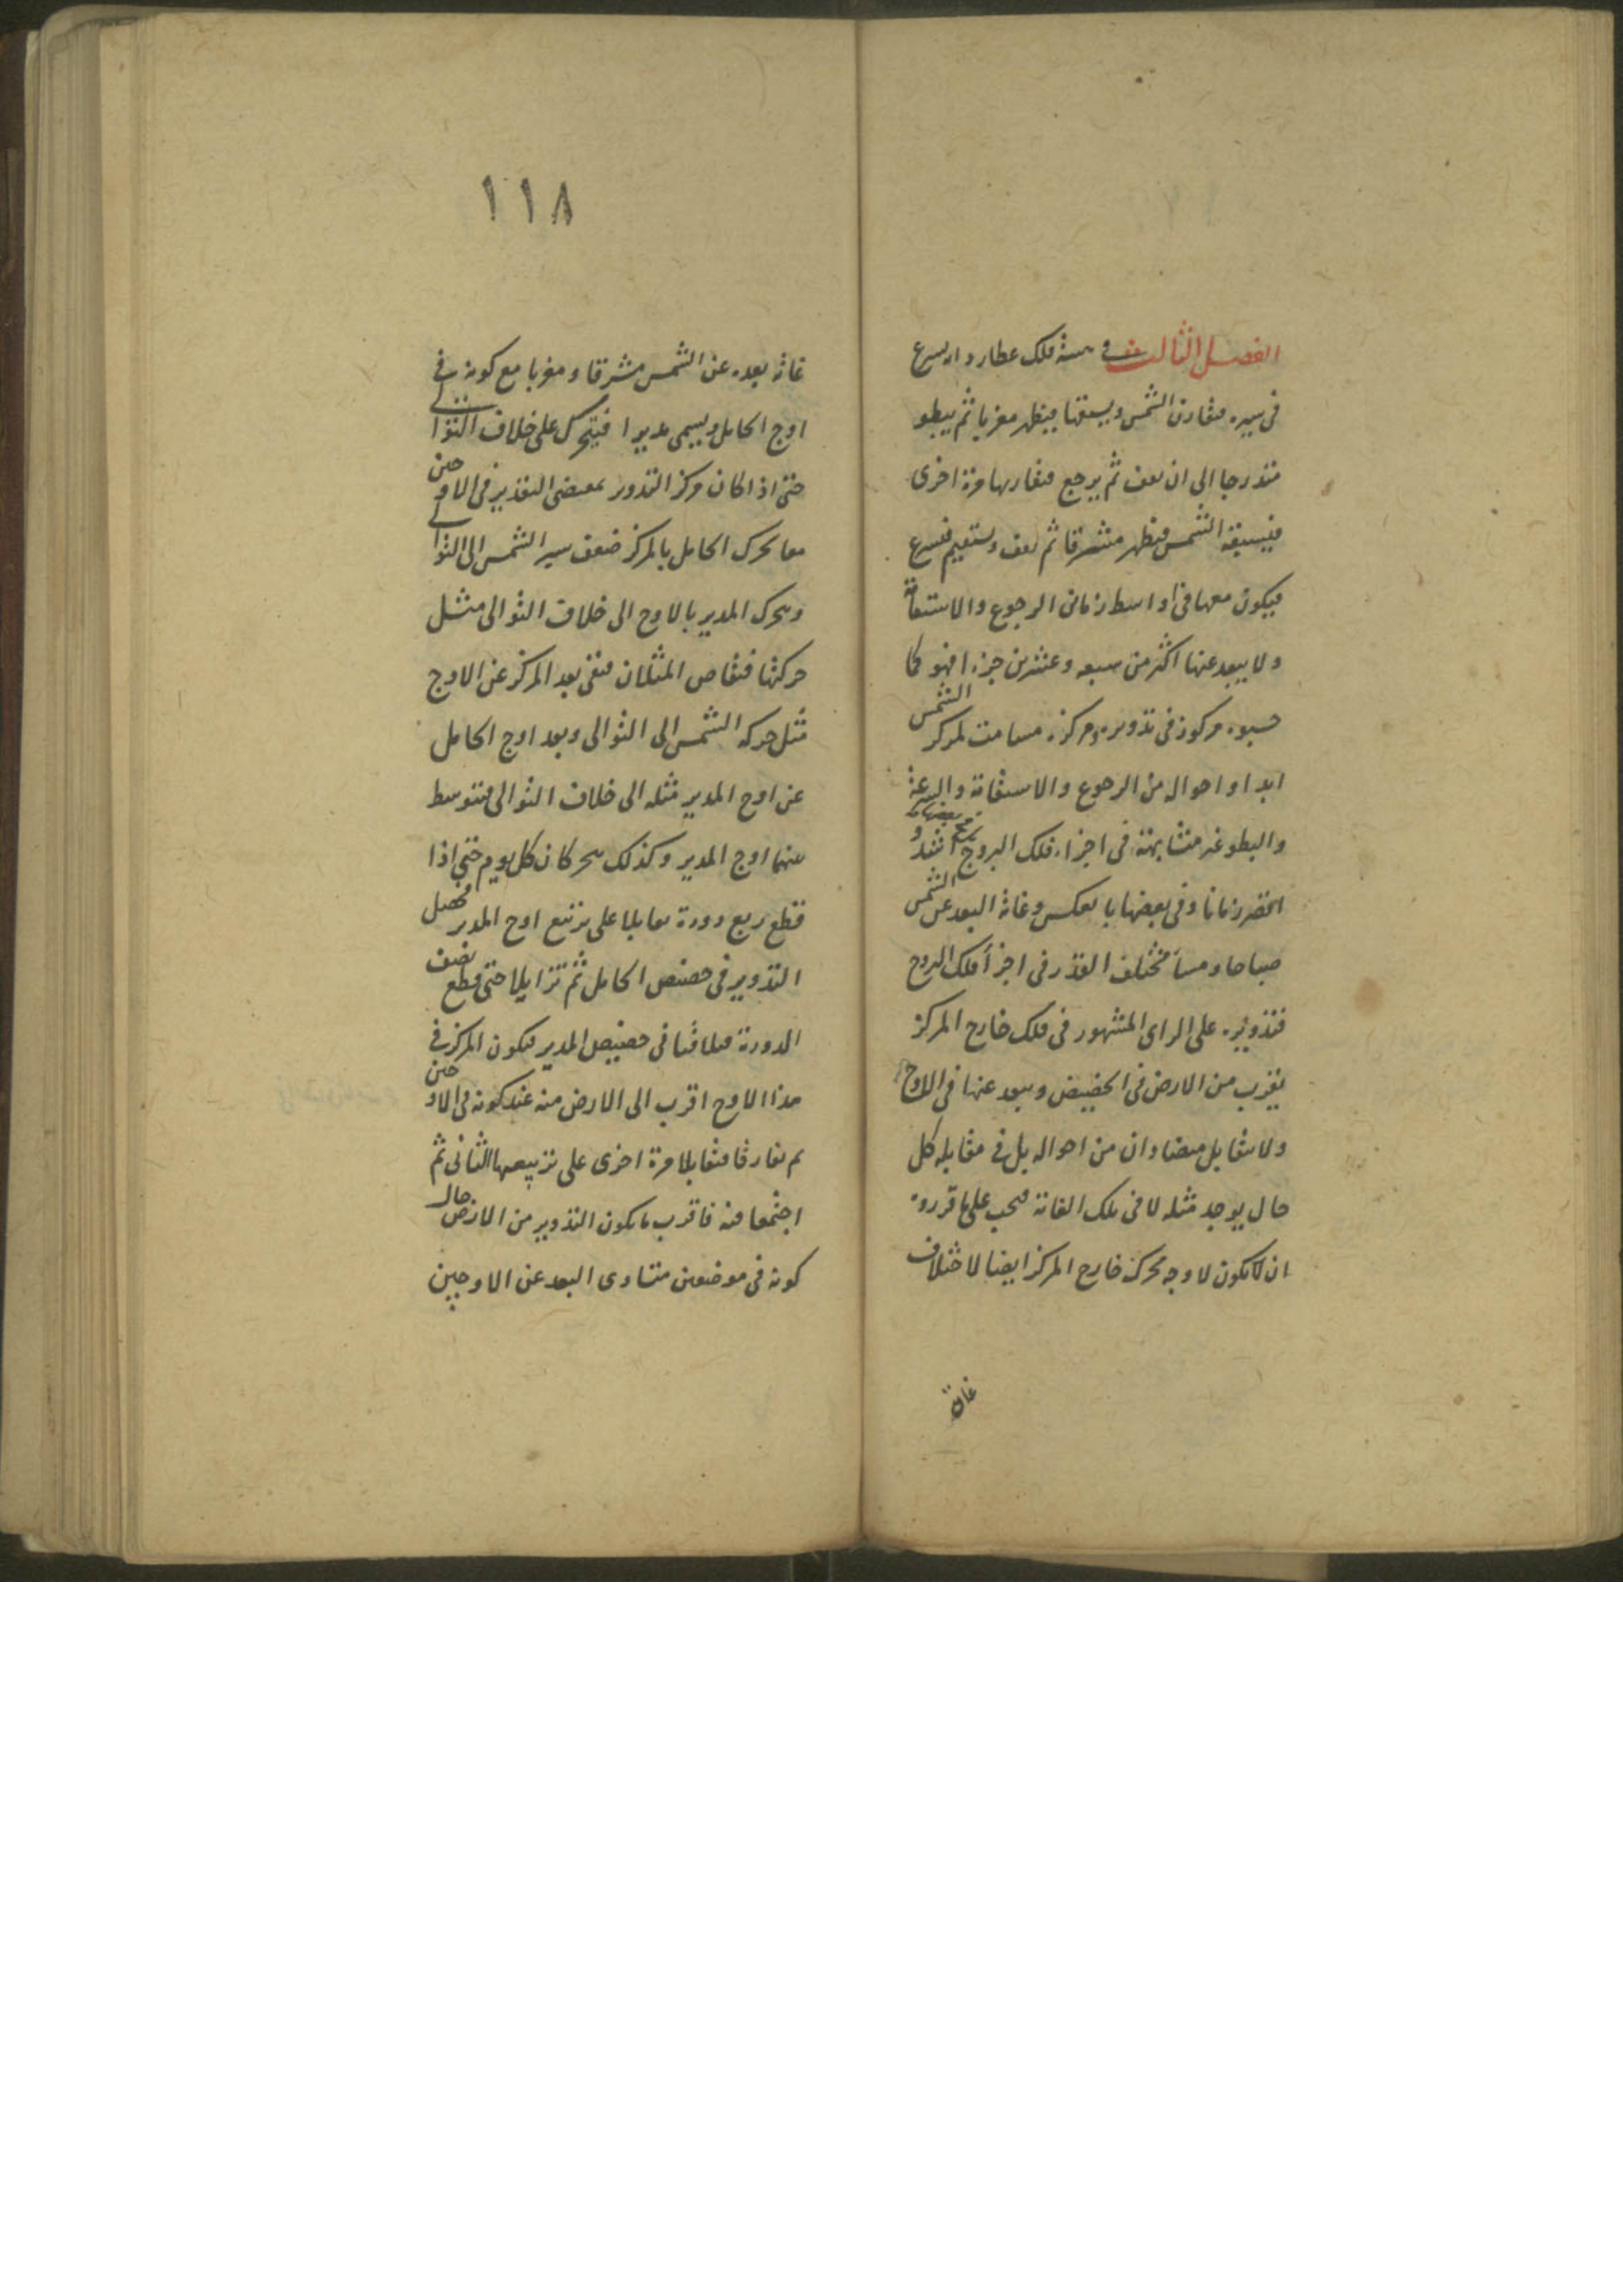 الفصل الثالث في هيئة فلك عطارد انه يسرع
في سيره فيقارن الشمس ويسبقها فيظهر مغربا ثم يبطو
متدرجا الى ان يقف ثم يرجع فيقاربها مرة اخرى
فيسبقه الشمس فيظهر مشرقا ثم يقف ويستقيم فيسرع
فيكون معها في اواسط زماني الرجوع والاستقامة
ولا يبعد عنها اكثر من سبعه وعشرين جزءا فهو كما
حسبوه مركوز في تدويره ومركزه مسامت لمركز الشمس
ابدا واحواله من الرجوع والاستقامة والسرعة
والبطو غير متشابهة في اجزاء فلك البروج ففي بعضها اشد و
اخضر زمانا وفي بعضها بالعكس وغاية البعد عن الشمس
صباحا ومساء مختلف القدر في اجزأ فلك البروج
فتدويره على الراى المشهور في فلك خارج المركز
يقرب من الارض في الحضيض ويبعد عنها في الاوج
ولا يتقابل متضادان من احواله بل في مقابله كل
حال يوجد مثله لا في تلك الغاية فيجب على ما قرروه
ان لا يكون لاوجه محرك خارج المركز ايضا لاختلاف
غاية
١١٨
غاية بعده عن الشمس مشرقا ومغربا مع كونه في
اوج الحامل ويسمى مديرا فيتحرك على خلاف التوالي
حتى اذا كان مركز التدوير بمقتضى التقدير في الاوجين
معا يحرك الحامل بالمركز ضعف سير الشمس الى التوالي
ويحرك المدير بالاوج الى خلاف التوالى مثل
حركتها فيقاص المثلان فبقى بعد المركز عن الاوج
مثل حركه الشمس الى التوالى وبعد اوج الحامل
عن اوج المدير مثله الى خلاف التوالى فيتوسط
بينهما اوج المدير وكذلك يتحركان كل يوم حتى اذا
قطع ربع دورة تقابلا على تربيع اوج المدير فحصل
التدوير في حضيض الحامل ثم تزايلا حتى قطع نصف
الدورة فيلاقيا في حضيض المدير فيكون المركز في
هذا الاوج اقرب الى الارض منه عند كونه في الاوجين
ثم تفارقا فتقابلا مرة اخرى على تربيعها الثانى ثم
اجتمعا فيه فاقرب ما يكون التدوير من الارض حال
كونه في موضعين متساوى البعد عن الاوجين